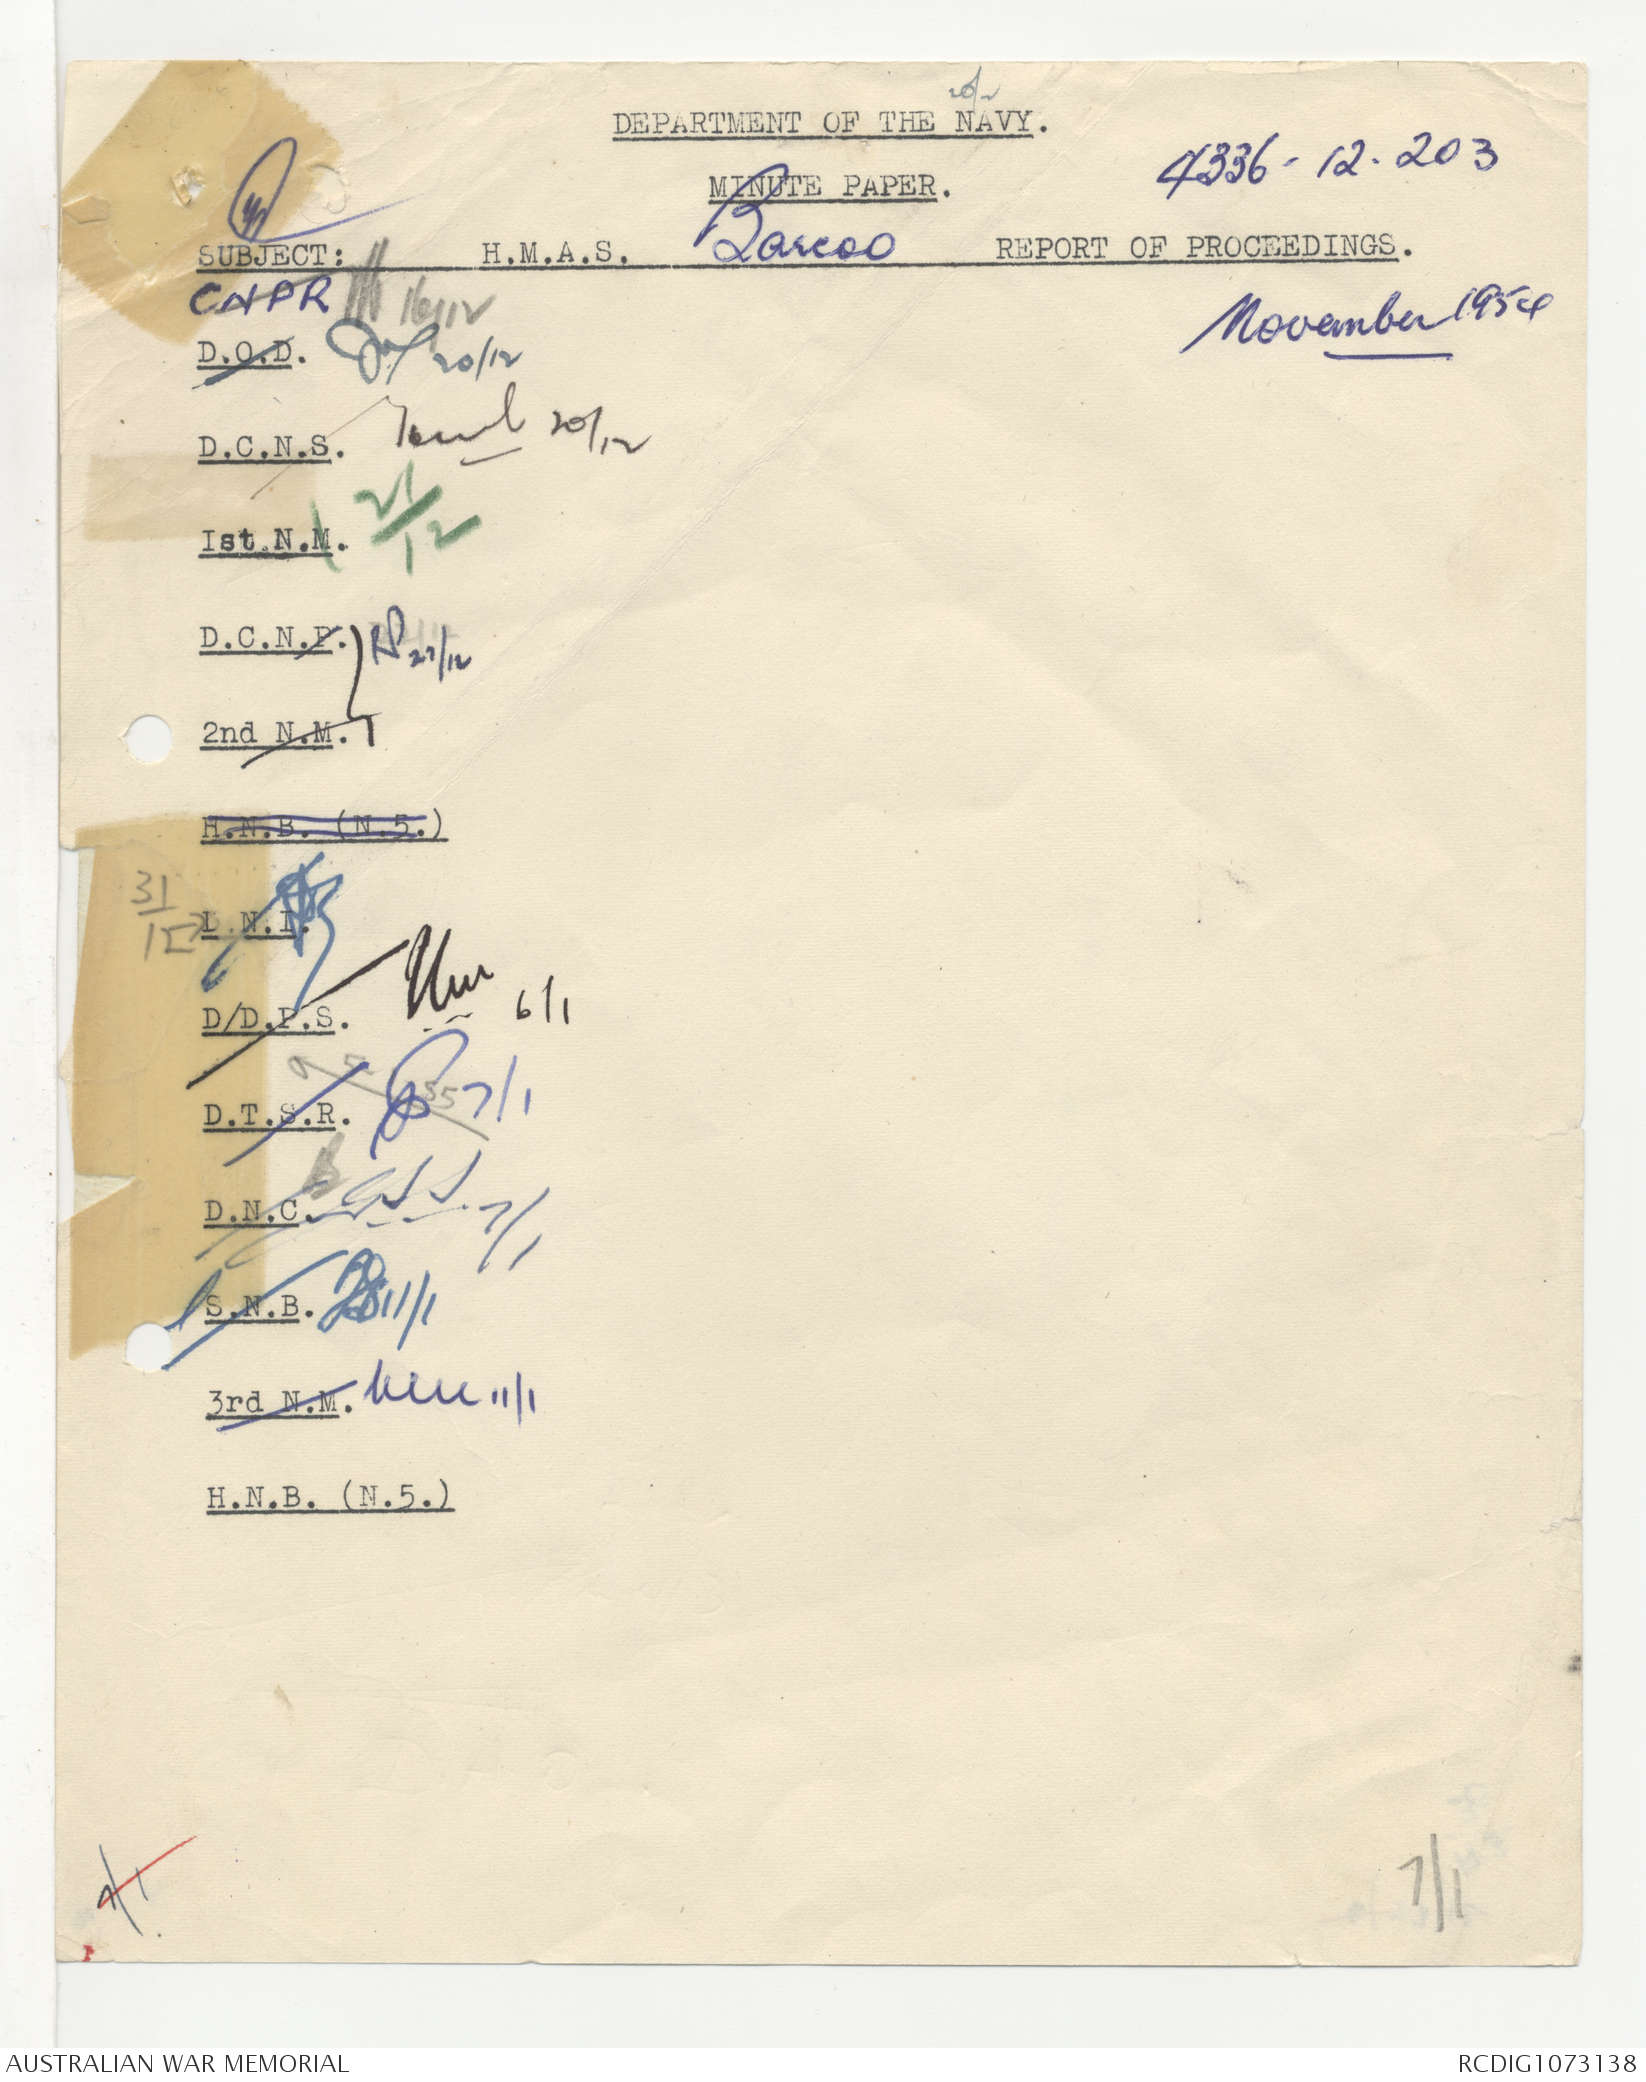 20/2
DEPARTMENT OF THE NAVY.
4336-12-203
MINUTE PAPER.
SUBJECT: H.M.A.S. Barcoo REPORT OF PROCEEDINGS.
CNPR 16/12
November 1954
D.O.D. 20/12
D.C.N.S. 20/12
Ist N.M. 21/12
D.C.N.P. 27/12
2nd N.M.
H.N.B. (N.5.)
31/12
D.N.I.
D/D.P.S. 6/1
D.T.S.R. 7/1
D.N.C. 7/1
S.N.B. 11/1
3rd N.M. 11/1
H.N.B. (N.5.)
7/1
AUSTRALIAN WAR MEMORIAL RCDIG1073138